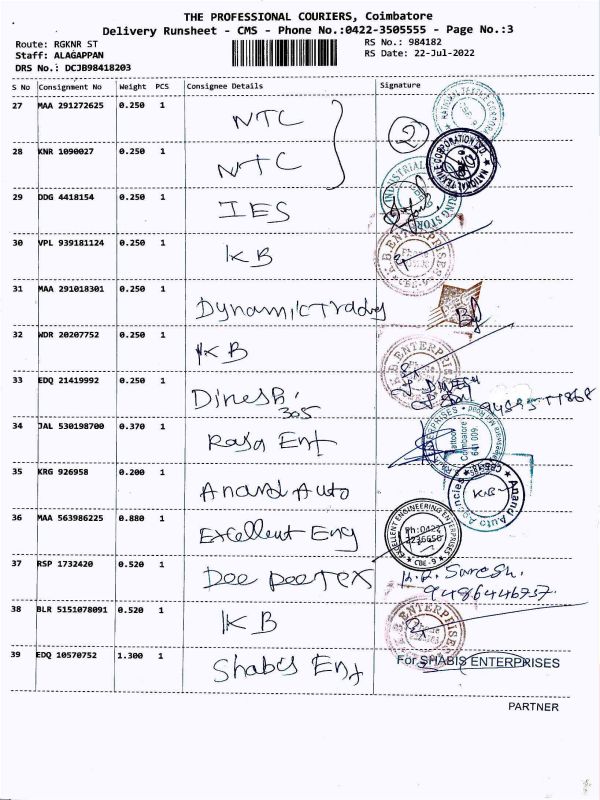 THE PROFESSIONAL COURIERS, Coimbatore
Delivery Runsheet - CMS - Phone No.:0422-3505555 - Page No.:3
Route: RGKNR ST
RS No.: 984182
Staff: ALAGAPPAN
RS Date: 22-Jul-2022
DRS No.: DCJB98418203
S No Consignment No Weight PCS Consignee Details Signature
27 MAA 291272625 0.250 1 NTC
2
28 KNR 1090027 0.250 1 NTC
NATIONAL TEXTILE CORPORATION
29 DDG 4418154 0.250 1 IES
INDUSTRIAL
30 VPL 939181124 0.250 1 KB
K.B.ENTERPRISES
CBE-9
31 MAA 291018301 0.250 1 Dynamic Trading
32 WDR 20207752 0.250 1 KB
K.B.ENTERPRISES
33 EDQ 21419992 0.250 1 Dinesh
305
34 JAL 530198700 0.370 1 Raja Ent
Coimbatore
641 009
35 KRG 926958 0.200 1 Anand Auto
Anand Auto Agencies
36 MAA 563986225 0.880 1 Excellent Eng
EXCELLENT ENGINEERING ENTERPRISES
Ph:0422
2236656
CBE - 9
37 RSP 1732420 0.520 1 Dee Dee Tex K.R. Suresh.
9486446737
38 BLR 5151078091 0.520 1 KB
K.B.ENTERPRISES
39 EDQ 10570752 1.300 1 Shabis Ent
For SHABIS ENTERPRISES
PARTNER